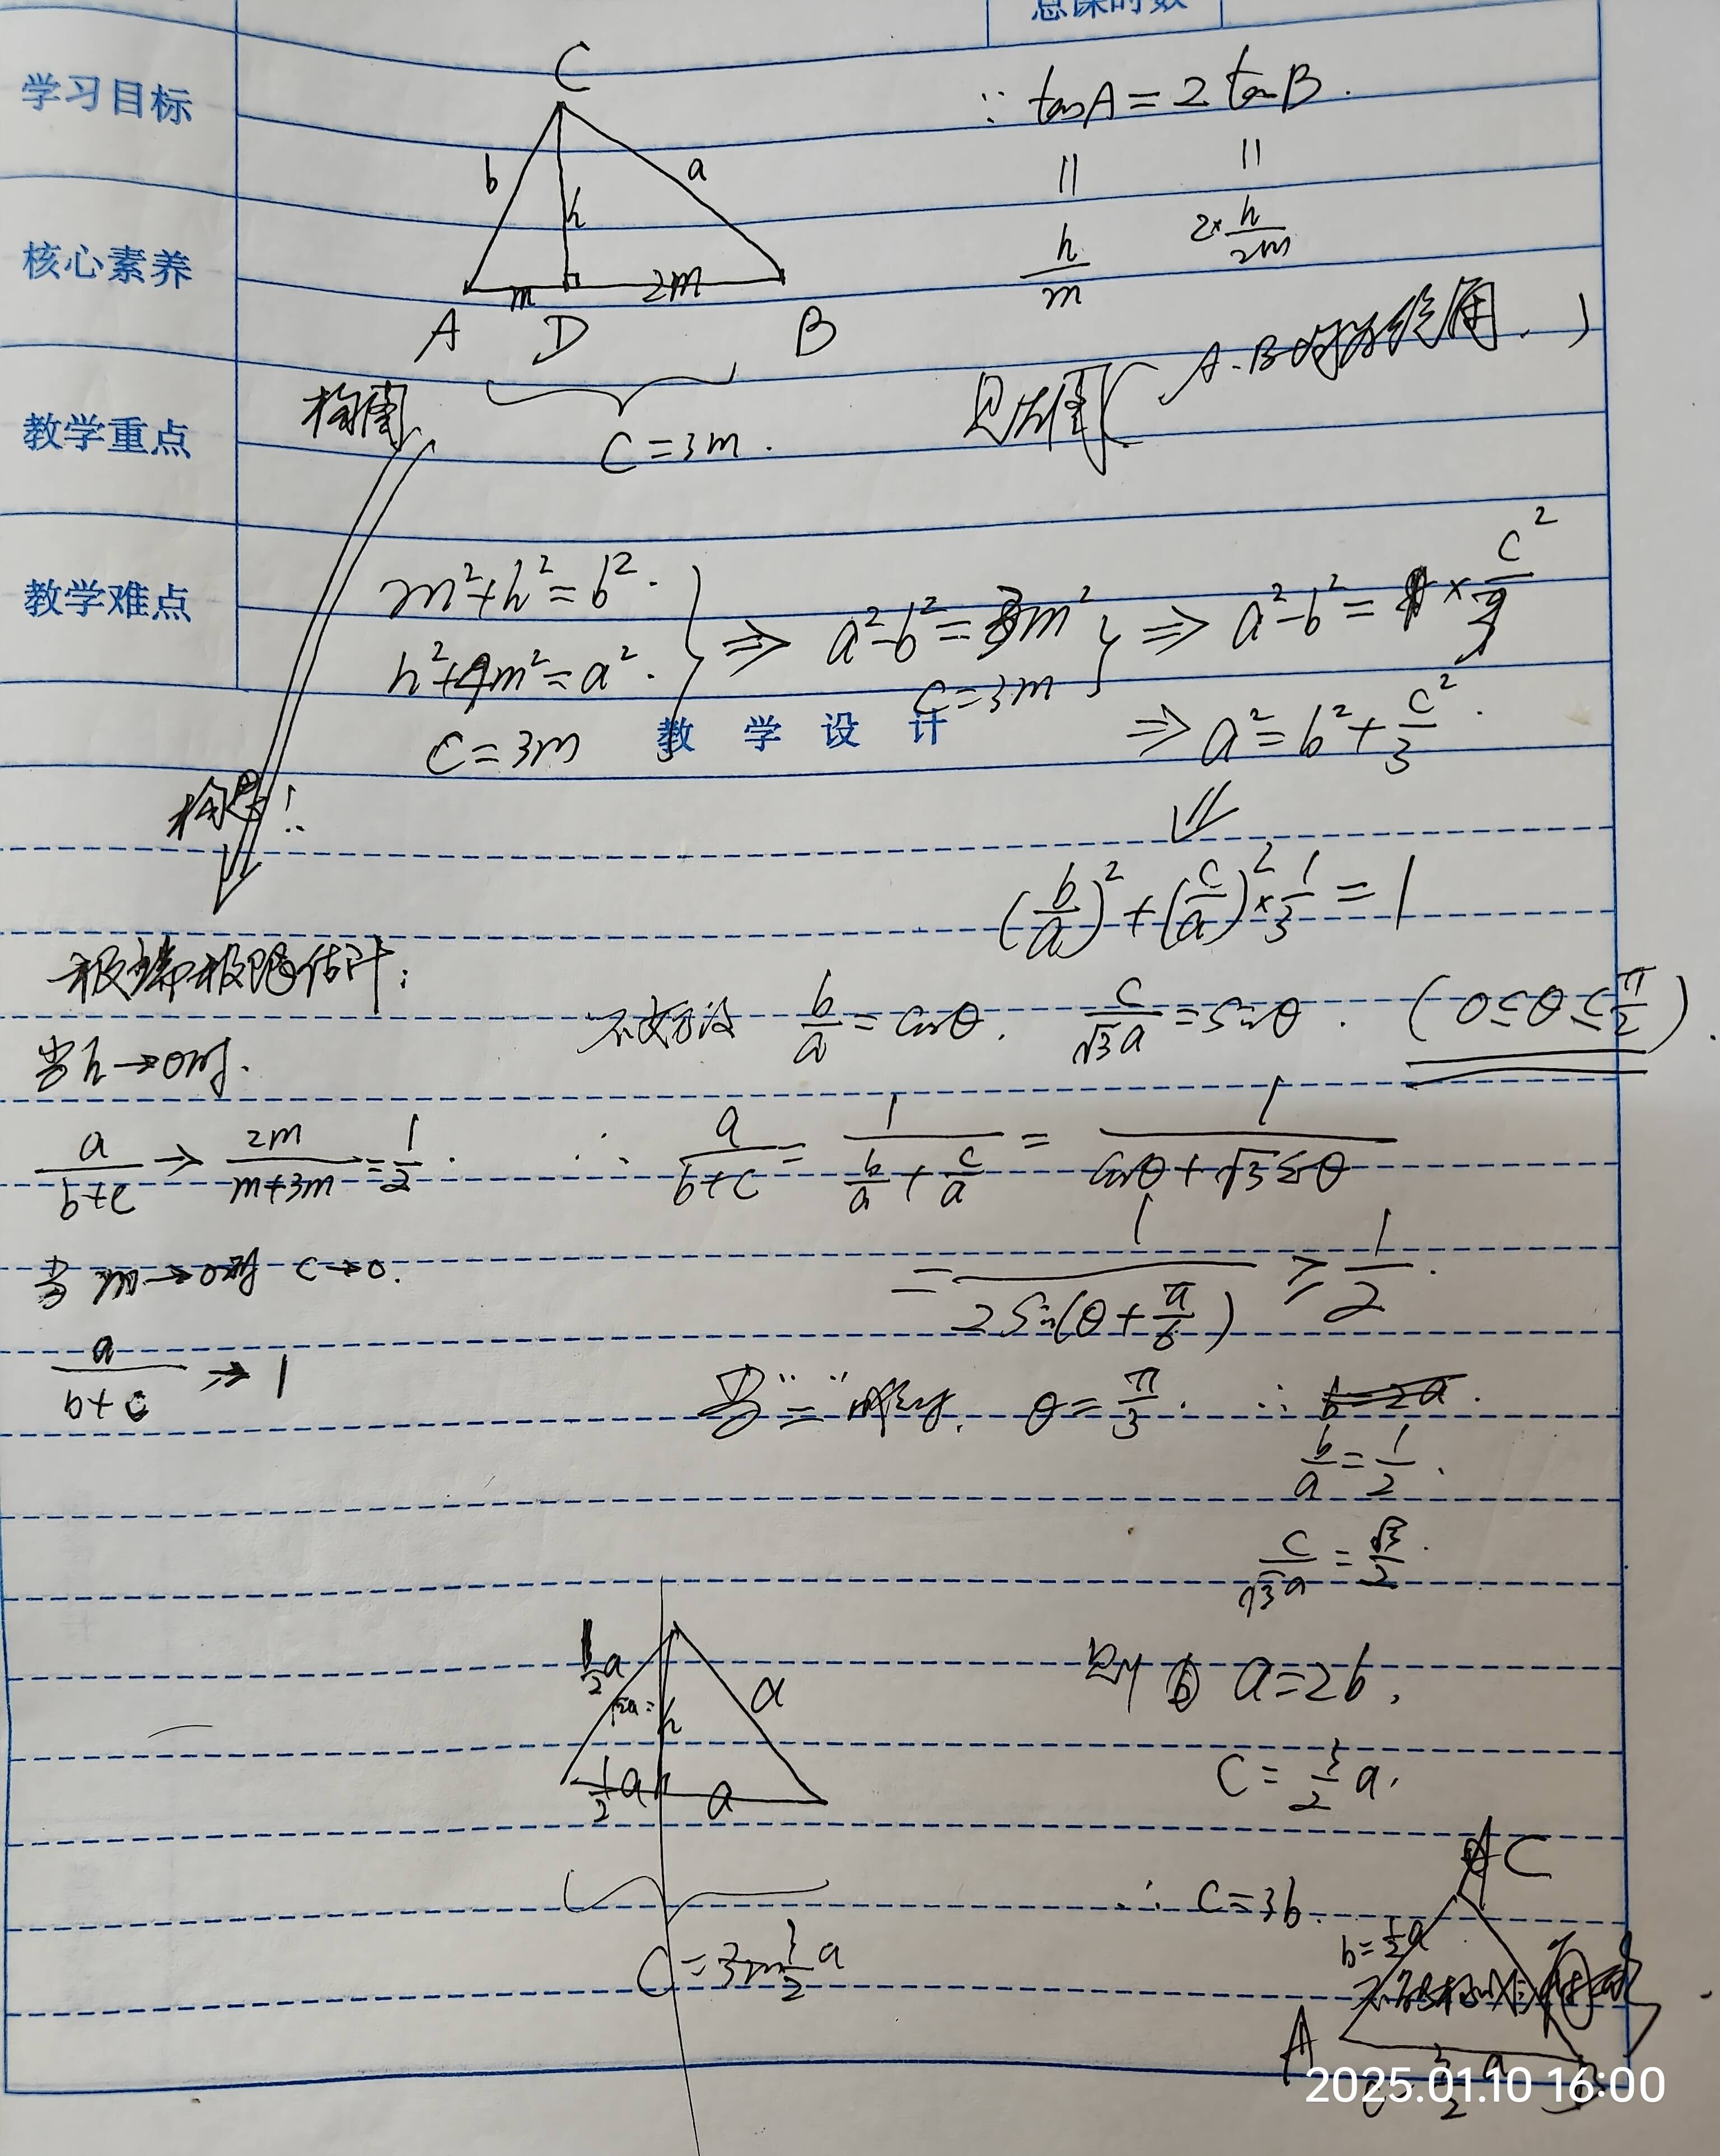 总课时数
学习目标
核心素养
教学重点
教学难点
教 学 设 计
C
b
a
h
m
2m
A D B
C=3m.
∵ tanA=2tanB.
= =
h/m 2×h/2m
构图
m²+h²=b².
h²+4m²=a².
C=3m
⇒ a²-b²=3m²
C=3m
⇒ a²-b²= × c²/3
⇒ a²=b²+c²/3.
(b/a)²+(c/a)²×1/3=1
极端极限估计:
当h→0时.
a/(b+c) → 2m/(m+3m)=1/2.
当m→0时 c→0.
a/(b+c) → 1
不妨设 b/a=cosθ. c/(√3a)=sinθ. (0≤θ≤π/2).
∴ a/(b+c)=1/(b/a+c/a)=1/(cosθ+√3sinθ)
=1/(2sin(θ+π/6)) ≥ 1/2.
当"=" 时, θ=π/3. ∴ b=2a.
b/a=1/2.
c/(√3a)=√3/2.
则 a=2b,
C=3/2a.
∴ C=3b.
1/2a
h
a
1/2a
a
C=3m 3/2a
C
b=1/2a
A
B
3/2a
2025.01.10 16:00